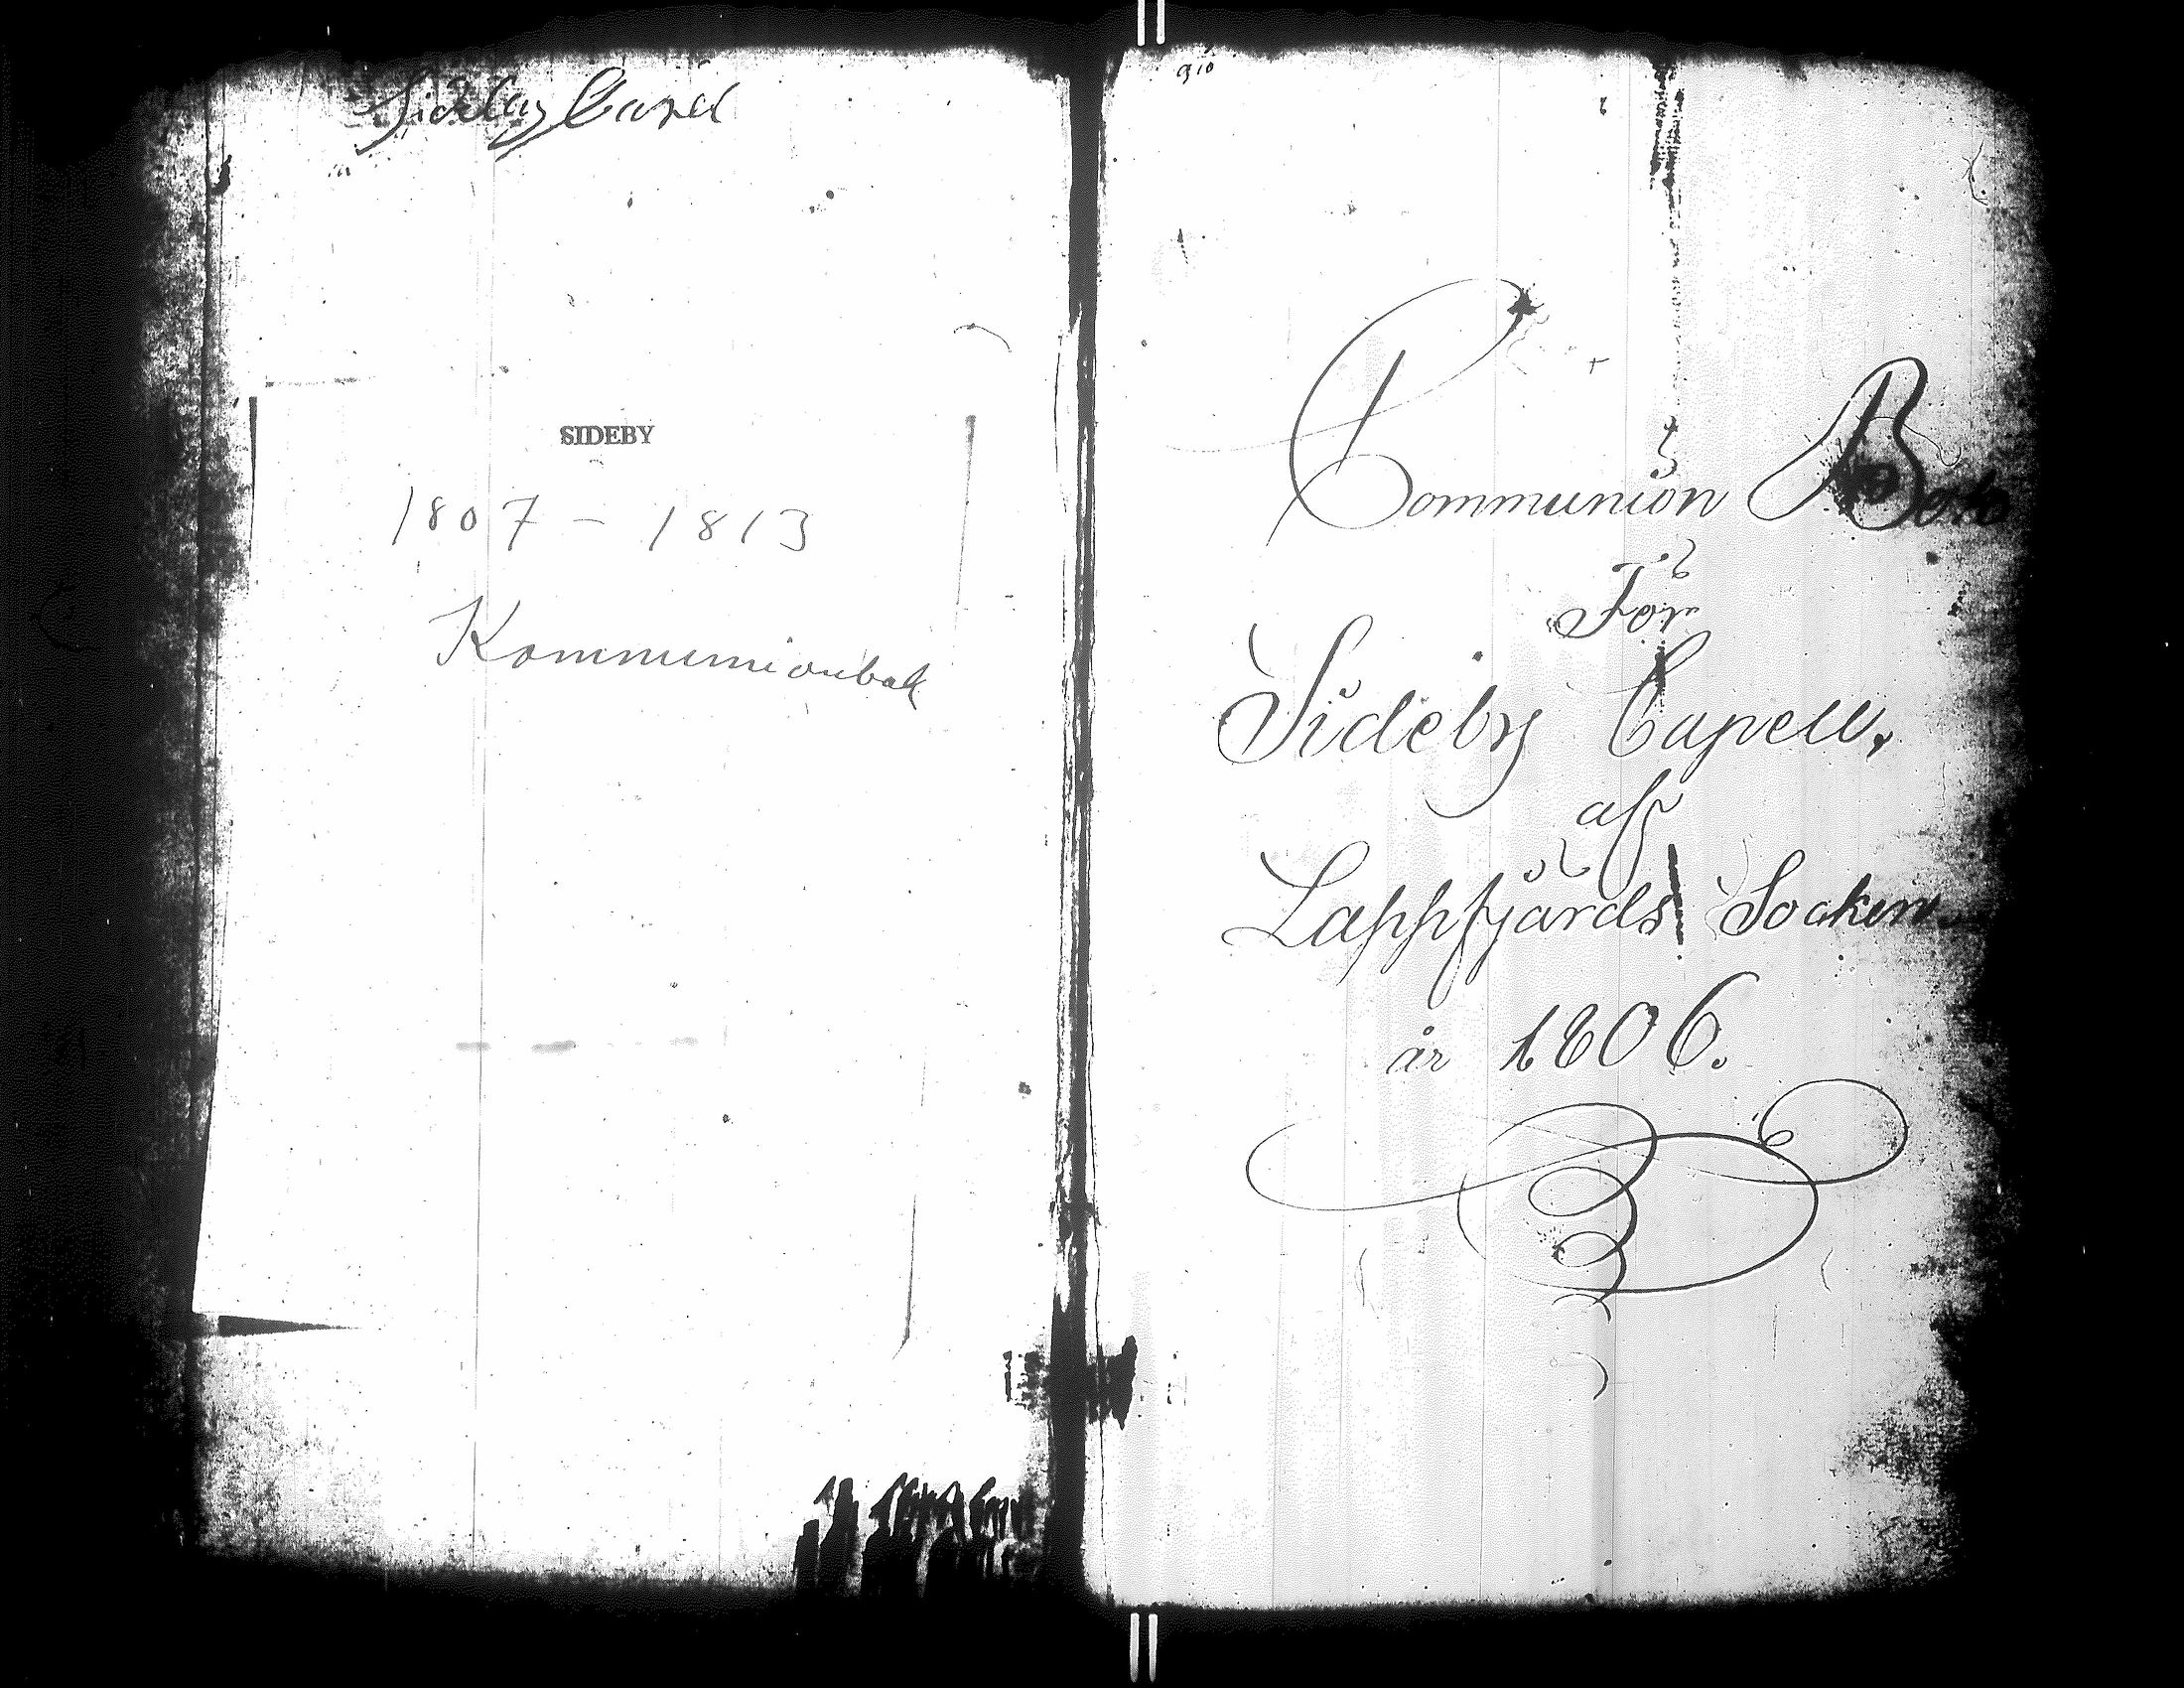 Sideby Capel
SIDEBY
1807 - 1813
Kommunionbok
Communion Bok
För
Sideby Capell,
af
Lappfjärds Socken
år 1806.